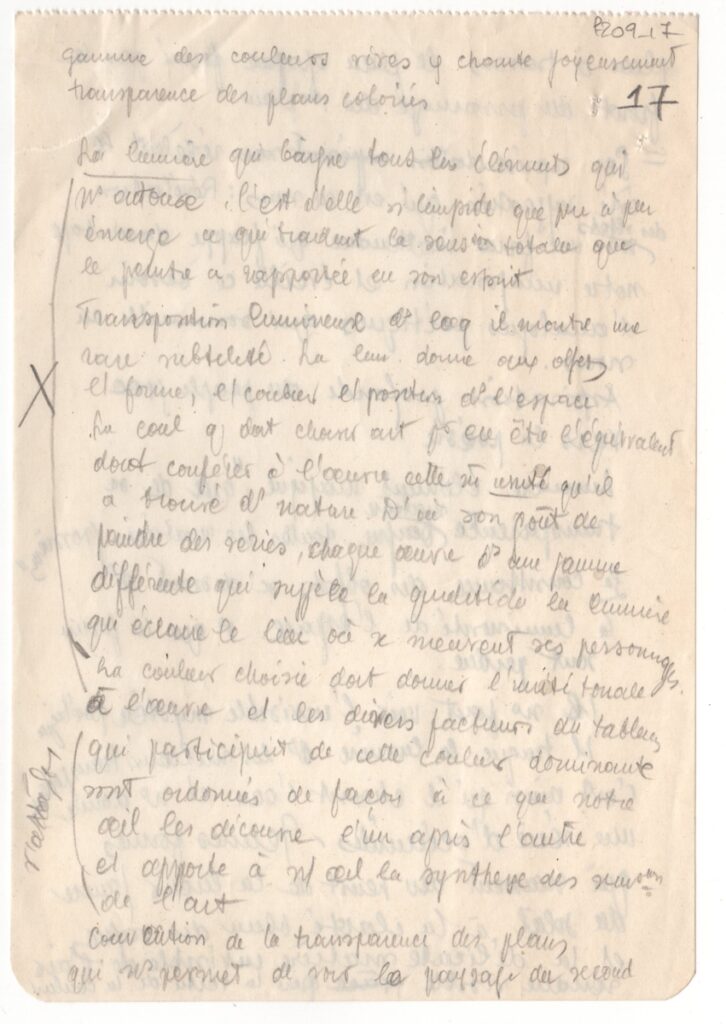 P209_17
17
gamme des couleurs vives y chante joyeusement
transparence des plans coloriés
La lumière qui baigne tous les éléments qui
ns entoure. C'est d'elle si limpide que peu à peu
émerge ce qui traduit la totale que
le peintre a rapportée en son esprit
Transposition lumineuse ds locq il montre une
rare subtilité. La lum. donne aux objets
l' forme, l' couleur l' position ds l'espace
La coul q doit choisir art pr en être l'équivalent
doit conférer à l'œuvre cette unité qu'il
a trouvé ds nature. D'où son goût de
peindre des séries, chaque œuvre ds une gamme
différente qui suggère la de la lumière
qui éclaire le lieu où se meuvent ses personnages.
La couleur choisie doit donner l'unité tonale
à l'œuvre et les divers facteurs du tableau
qui participent de cette couleur dominante
sont ordonnés de façon à ce que notre
œil les découvre l'un après l'autre
et apporte à œil la synthese des
de l'art
Convention de la transparence des plans
qui ns permet de voir le paysage du second